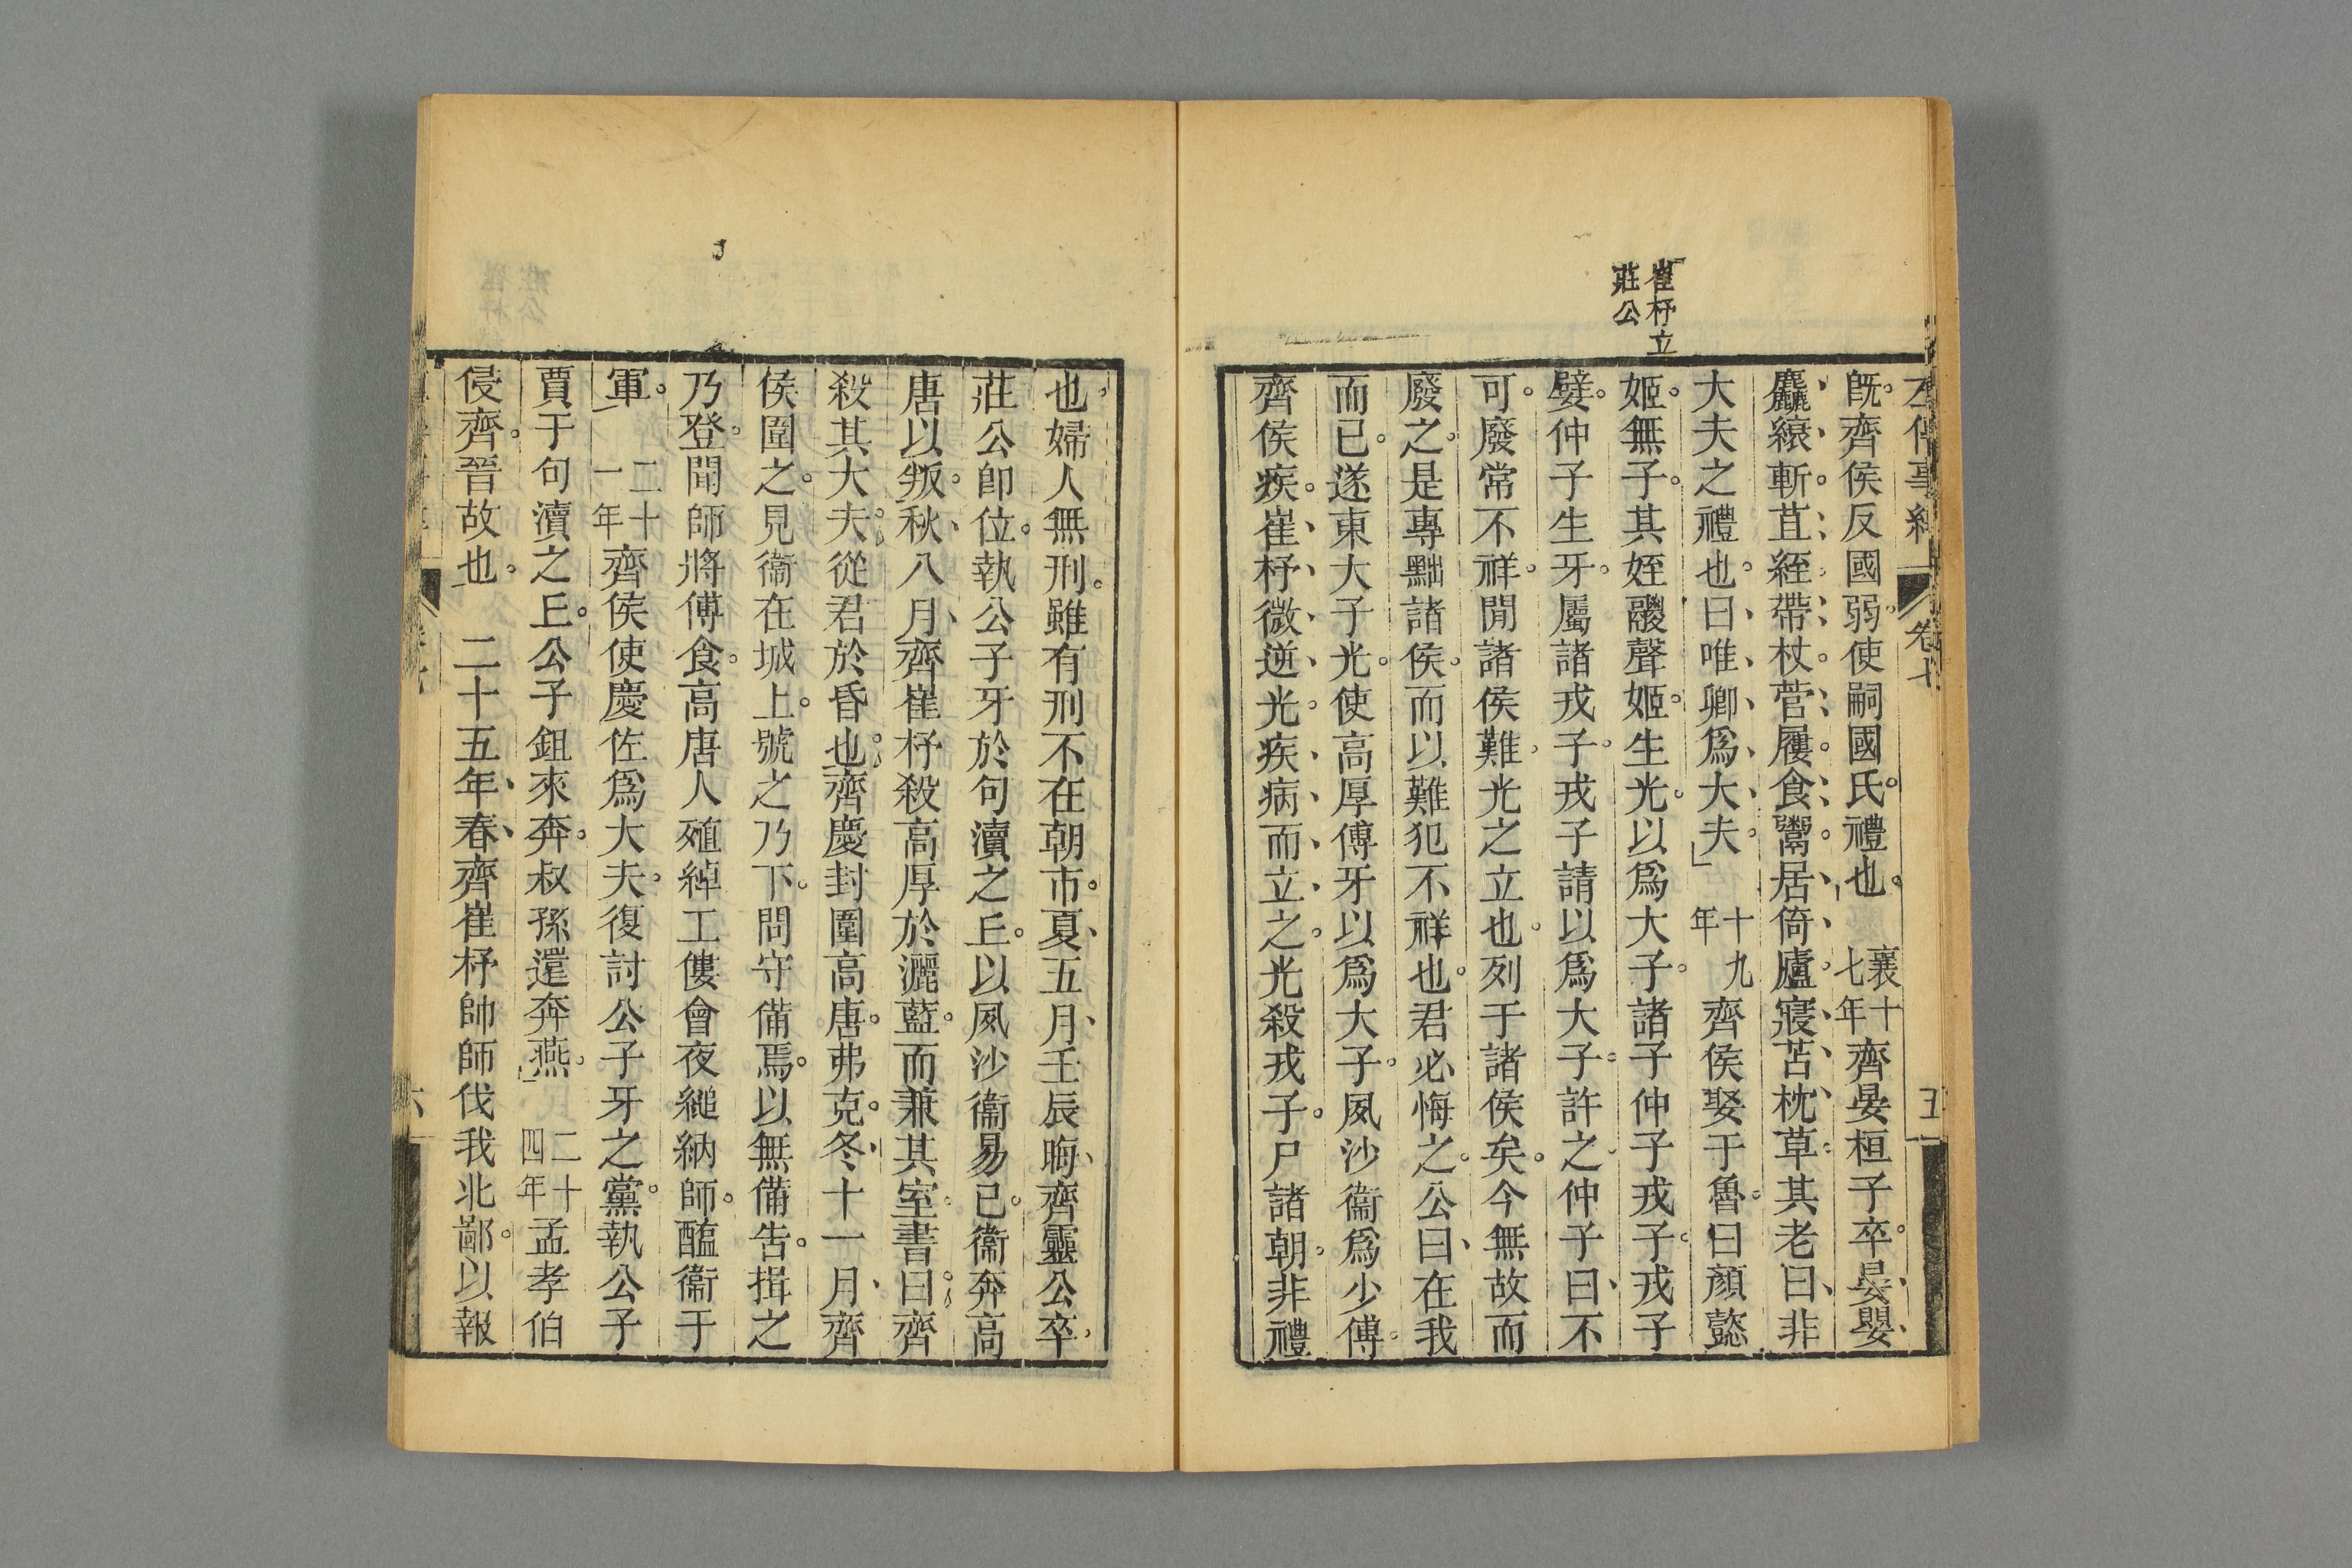 左傳事緯
卷七
五
崔杼立
莊公
既齊侯反國弱使嗣國氏禮也 襄十七年齊晏桓子卒晏嬰
麤縗斬苴絰帶杖菅屨食鬻居倚廬寢苫枕草其老曰非
大夫之禮也曰唯卿爲大夫 十九年齊侯娶于魯曰顏懿
姬無子其姪鬷聲姬生光以爲大子諸子仲子戎子戎子
嬖仲子生牙屬諸戎子戎子請以爲大子許之仲子曰不
可廢常不祥閒諸侯難光之立也列于諸侯矣今無故而
廢之是專黜諸侯而以難犯不祥也君必悔之公曰在我
而已遂東大子光使高厚傅牙以爲大子夙沙衞爲少傅
齊侯疾崔杼微逆光疾病而立之光殺戎子尸諸朝非禮
也婦人無刑雖有刑不在朝市夏五月壬辰晦齊靈公卒
莊公卽位執公子牙於句瀆之丘以夙沙衞易已衞奔高
唐以叛秋八月齊崔杼殺高厚於灑藍而兼其室書曰齊
殺其大夫從君於昏也齊慶封圍高唐弗克冬十一月齊
侯圍之見衞在城上號之乃下問守備焉以無備告揖之
乃登聞師將傅食高唐人殖綽工僂會夜縋納師醢衞于
軍 二十一年齊侯使慶佐爲大夫復討公子牙之黨執公子
賈于句瀆之丘公子鉏來奔叔孫還奔燕 二十四年孟孝伯
侵齊晉故也 二十五年春齊崔杼帥師伐我北鄙以報
六